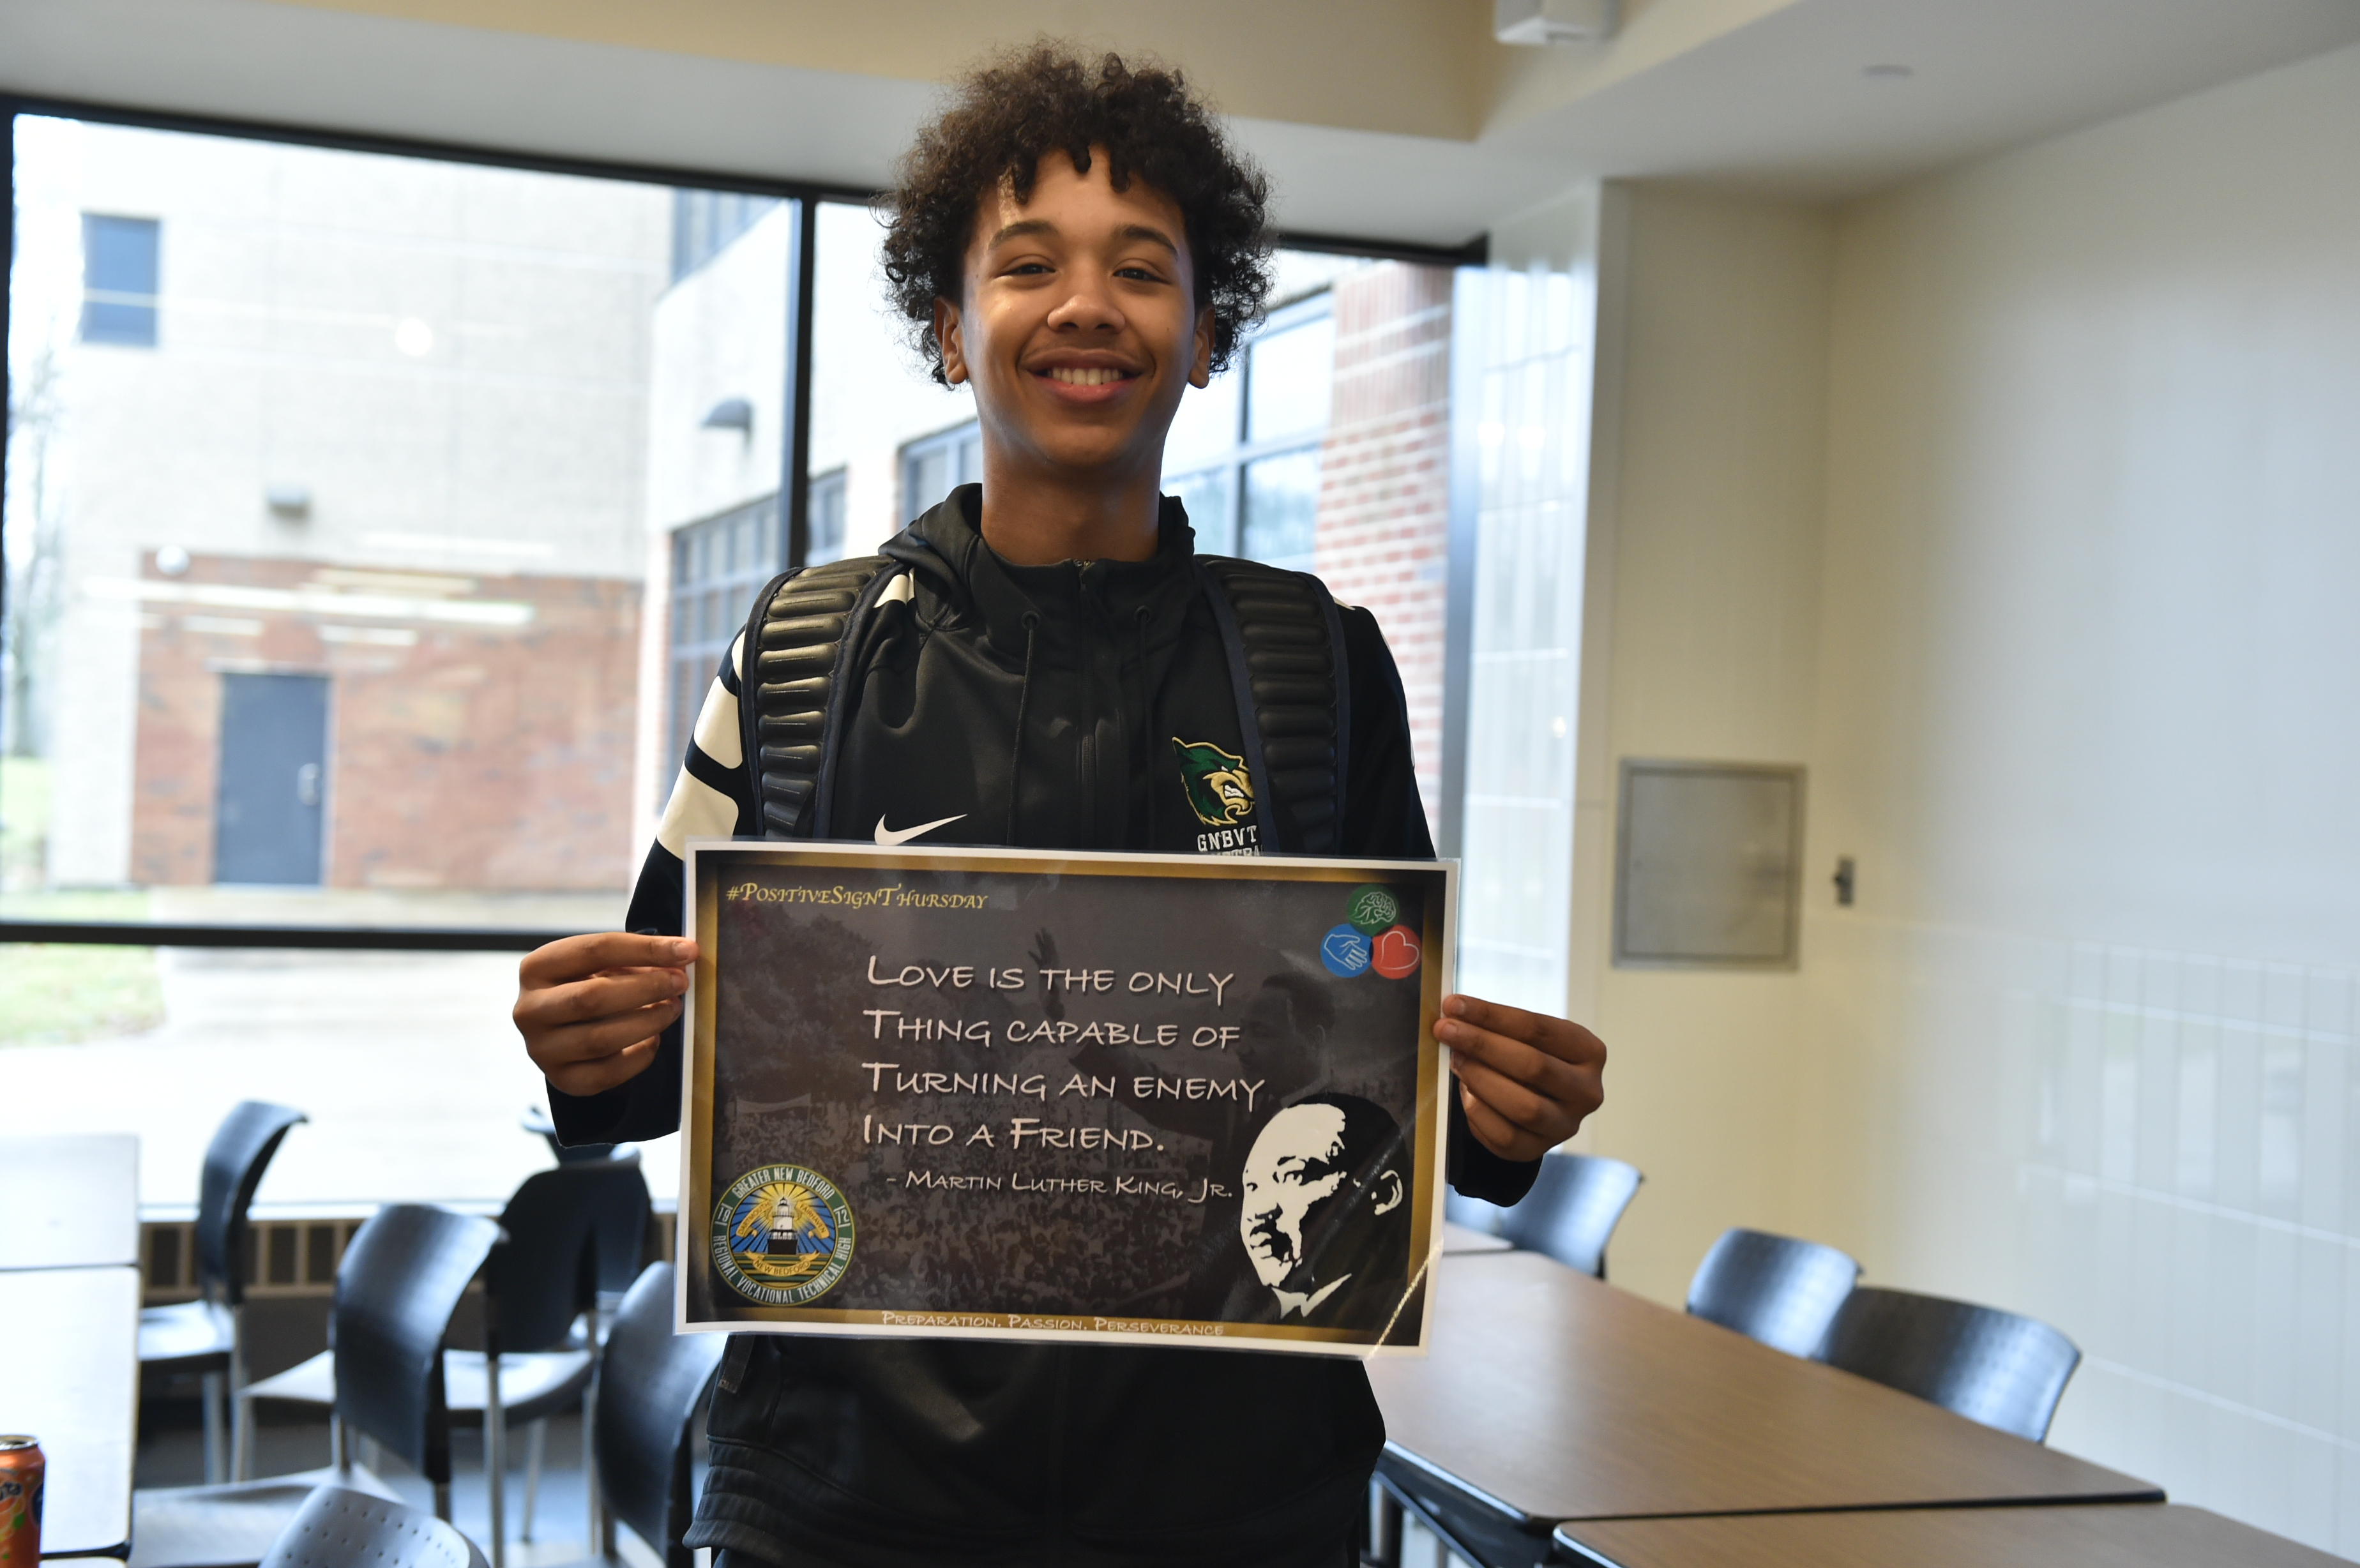 GNBVT
#PositiveSignThursday
Love is the only
Thing capable of
Turning an enemy
Into a Friend.
- Martin Luther King, Jr.
GREATER NEW BEDFORD
REGIONAL VOCATIONAL TECHNICAL HIGH
NEW BEDFORD
Preparation, Passion, Perseverance